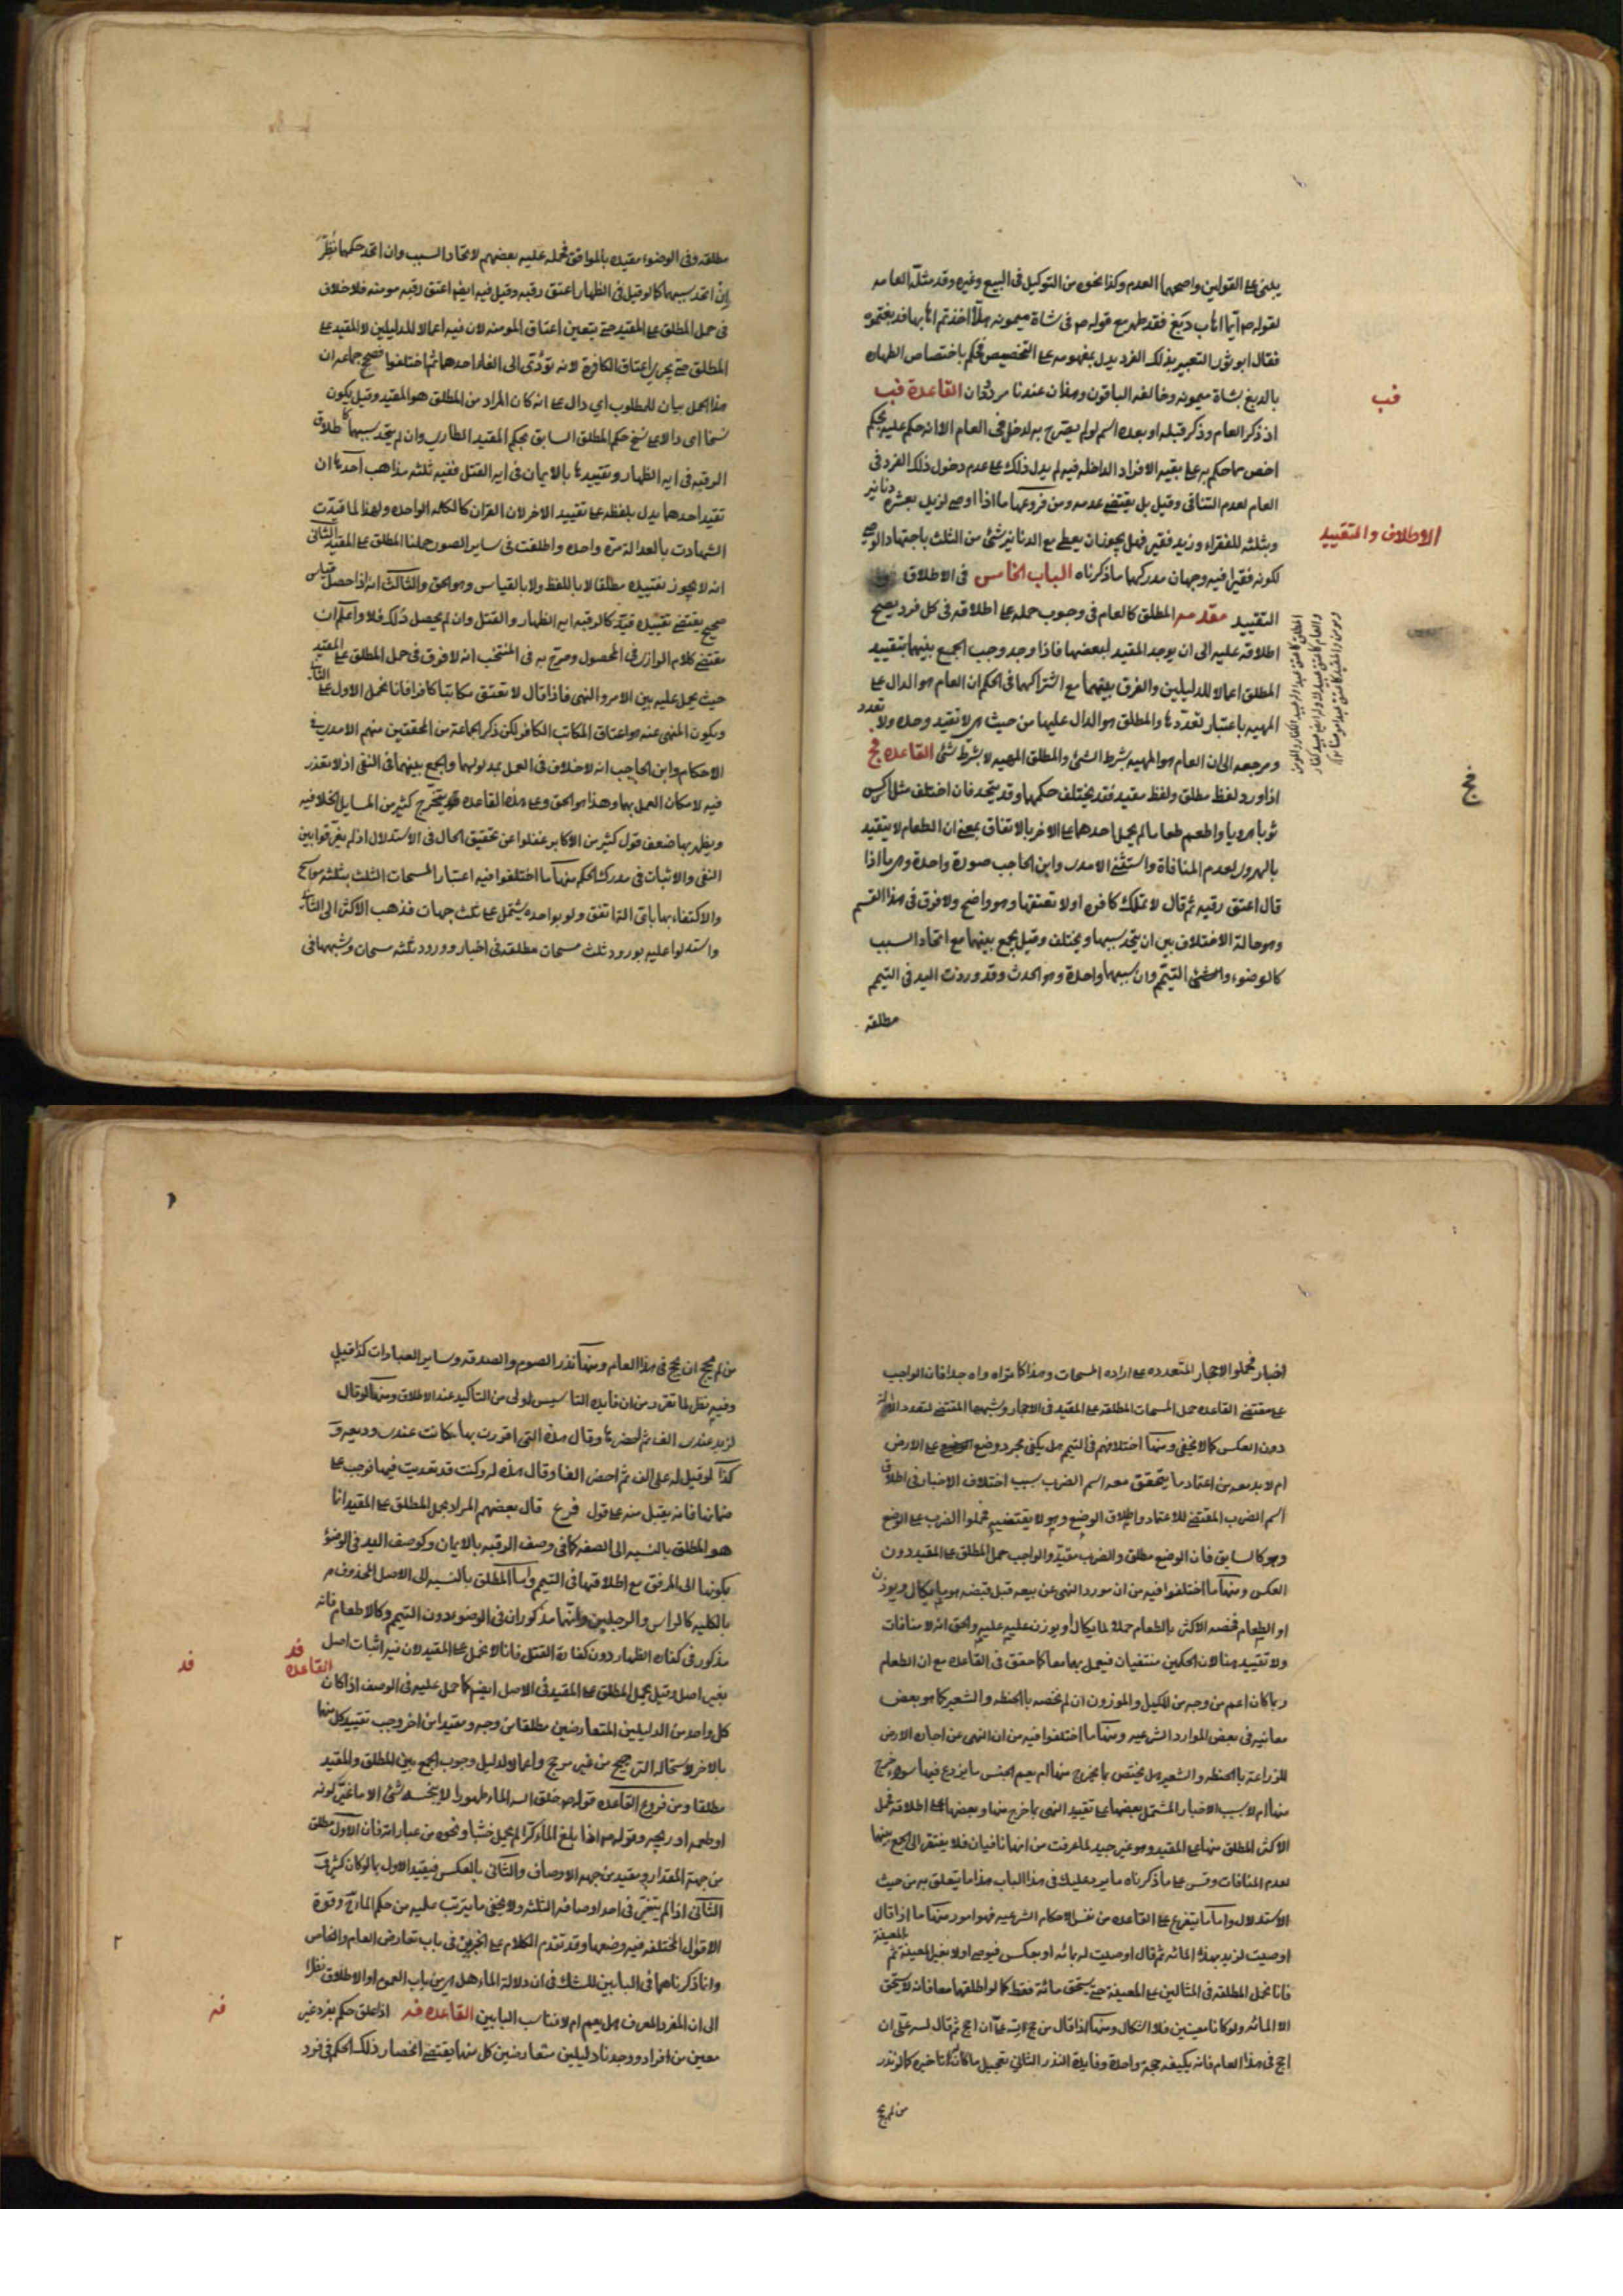 يبتنى على القولين واصحهما العدم وكذا نحوه من التوكيل فى البيع وغيره وقد مثله العامه
لقوله ص ايما اهاب دبغ فقد طهر مع قوله ص فى شاة ميمونه هلا اخذتم اهابها فدبغتموه
فقال ابو ثور التعبير بذلك الفرد يدل بمفهومه على التخصيص فحكم باختصاص الطهاره
بالدبغ بشاة ميمونه وخالفه الباقون وهذان عندنا مردودان القاعدة فب
اذ ذكر العام وذكر قبله او بعده اسم لو لم يصرح به لدخل فى العام الا انه حكم عليه بحكم
اخص مما حكم به على بقيه الافراد الداخله فيه لم يدل ذلك على عدم دخول ذلك الفرد فى
العام لعدم التنافى وقيل بل يقتضى عدمه ومن فروعها ما اذا اوصى لزيد بعشرة دنانير
وبثلثه للفقراء وزيد فقير فهل يجوز ان يعطى مع الدنانير شئ من الثلث باجتهاد الوصى
لكونه فقيرا فيه وجهان مدركهما ما ذكرناه الباب الخامس فى الاطلاق
التقييد مقدمه المطلق كالعام فى وجوب حمله على اطلاقه فى كل فرد يصح
اطلاقه عليه الى ان يوجد المقيد لبعضها فاذا وجد وجب الجمع بينهما بتقييد
المطلق اعمالا للدليلين والفرق بينهما مع اشتراكهما فى الحكم ان العام هو الدال على
المهيه باعتبار تعددها والمطلق هو الدال عليها من حيث هى لا تقيد وحده ولا تعدد
ومرجعه الى ان العام هو المهيه بشرط الشئ والمطلق المهيه لا بشرط شئ القاعده فج
اذا ورد لفظ مطلق ولفظ مقيد فقد يختلف حكمهما وقد يتحد فان اختلف مثل اكس
ثوبا هرويا واطعم طعاما لم يحمل احدهما على الاخر بالاتفاق بمعنى ان الطعام لا يتقيد
بالهروى لعدم المنافاة واستثنى الامدى وابن الحاجب صورة واحدة وهى ما اذا
قال اعتق رقبه ثم قال لا تملك كافره او لا تعتقها وهو واضح ولا فرق فى هذا القسم
وهو حالة الاختلاف بين ان يتحد سببهما او يختلف وقيل يجمع بينهما مع اتحاد السبب
كالوضوء والتيمم وان سببهما واحدة وهو الحدث وقد وردت اليد فى التيمم
مطلقه
فب
الاطلاق والتقييد
فج
مطلقه وفى الوضوء مقيده بالمرافق فحمله عليه بعضهم لاتحاد السبب وان اتحد حكمهما نظر
ان اتحد سببهما كما لو قيل فى الظهار اعتق رقبه وقيل فيه ايضا اعتق رقبه مومنه فلا خلاف
فى حمل المطلق على المقيد حتى يتعين اعتاق المومنه لان فيه اعمالا للدليلين لا المقيد على
المطلق حتى يجزى اعتاق الكافرة لانه يؤدى الى الغاء احدهما ثم اختلفوا فصحح جماعه ان
هذا الحمل بيان للمطلوب اي دال على انه كان المراد من المطلق هو المقيد وقيل يكون
نسخا اى دالا على نسخ حكم المطلق السابق بحكم المقيد الطارى وان لم يتحد سببهما كاطلاق
الرقبه فى ايه الظهار وتقييدها بالايمان فى ايه القتل ففيه ثلثه مذاهب احدها ان
تقييد احدهما يدل بلفظه على تقييد الاخر لان القران كالكلمه الواحده ولهذا لما قيدت
الشهادت بالعداله مرة واحده واطلقت فى ساير الصور حملنا المطلق على المقيد الثانى
انه لا يجوز تقييده مطلقا لا باللفظ ولا بالقياس وهو الحق والثالث انه اذا حصل قياس
صحيح يقتضى تقييده قيد كالرقبه ايه الظهار والقتل وان لم يحصل ذلك فلا واعلم ان
مقتضى كلام الرازى فى المحصول وصرح به فى المنتخب انه لا فرق فى حمل المطلق على المقيد
حيث يحمل عليه بين الامر والنهى فاذا قال لا تعتق مكاتبا كافرا فانا نحمل الاول على الثانى
ويكون المنهى عنه هو اعتاق المكاتب الكافر لكن ذكر الجماعة من المحققين منهم الامدى فى
الاحكام وابن الحاجب انه لا خلاف فى العمل بمدلولهما والجمع بينهما فى النفى اذ لا تعذر
فيه لامكان العمل بهما وهذا هو الحق وعلى هذه القاعده يتخرج كثير من المسايل الخلافيه
ويظهر بها ضعف قول كثير من الاكابر غفلوا عن تحقيق الحال فى الاستدلال اذ لم يفرقوا بين
النفى والاثبات فى مدرك الحكم منها ما اختلفوا فيه اعتبار المسحات الثلث بثلثه مواسح
والاكتفاء بها باى اله اتفق ولو بواحده يشتمل على ثلث جهات فذهب الاكثر الى الثانى
واستدلوا عليه بورود ثلث مسحات مطلقه فى اخبار وورود ثلثه مسحات وشبهها فى
اخبار فحملوا الاحجار المتعدده على اراده المسحات وهذا كما تراه واه جدا فان الواجب
على مقتضى القاعده حمل المسحات المطلقه على المقيد فى الاحجار وشبهها المقتضى لتعدد الاله
دون العكس كما لا يخفى ومنها اختلافهم فى التيمم هل يكفى مجرد وضع على الارض
ام لا بد معه من اعتماد ما يتحقق معه اسم الضرب سبب اختلاف الاخبار فى اطلاق
اسم الضرب المقتضى للاعتماد واطلاق الوضع وهو لا يقتضيه فحملوا الضرب على الوضع
وهو كالسابق فان الوضع مطلق والضرب مقيد والواجب حمل المطلق على المقيد دون
العكس ومنها ما اختلفوا فيه من ان مورد النهى عن بيعه قبل قبضه هو ما يكال ويوزن
او الطعام فخصه الاكثر بالطعام حملا لما يكال او يوزن عليه والحق انه لا منافات
ولا تقييد هنا لان الحكمين منتفيان فيعمل بهما معا كما حقق فى القاعده مع ان الطعام
ربما كان اعم من وجه من المكيل والموزون ان لم نخصه بالحنطه والشعير كما هو بعض
معانيه فى بعض الموارد الشرعيه ومنها ما اختلفوا فيه من ان النهى عن اجاره الارض
للزراعة بالحنطه والشعير هل يختص بما يخرج منها ام يعم الجنس ما يزرع فيها سواء خرج
منها ام لا سبب الاخبار المشتمل بعضها على تقييد النهى بما خرج منها وبعضها على اطلاقه فحمل
الاكثر المطلق منها على المقيد وهو غير جيد لما عرفت من انهما نافيان فلا يفتقر الى الجمع بينهما
لعدم المنافات وقس على ما ذكرناه ما يرد عليك فى هذا الباب هذا ما يتعلق به من حيث
الاستدلال واما ما يتفرع على القاعده من نفس الاحكام الشرعيه فهو امور منها ما اذا قال
اوصيت لزيد بهذه المائه ثم قال اوصيت له بمائه او بعكس فيوصى اولا بغير المعينة ثم بالمعينة
فانا نحمل المطلقه فى المثالين على المعينة حتى يستحق مائة فقط كما لو اطلقهما معا فانه لا يستحق
الا المائه ولو كانا معينين فلا اشكال ومنها اذا قال من حج لله على ان احج ثم قال لله على ان
احج فى هذا العام فانه يكفيه حجة واحدة وفايدة النذر الثانى تعجيل ما كان له تاخيره كما لو نذر
من لم يحج
من لم يحج ان يحج فى هذا العام ومنها نذر الصوم والصدقه وساير العبادات كذا قيل
وفيه نظر لما تقرر من ان فايده التاسيس اولى من التاكيد عند الاطلاق ومنها لو قال
لزيد عندى الف ثم احضرها وقال هذه التى اقررت بها كانت عندى وديعه و
كذا لو قيل له على الف ثم احضر الفا وقال هذه له وكنت قد تعديت فيها فوجب على
ضمانها فانه يقبل منه على قول فرع قال بعضهم المراد بحمل المطلق على المقيد انا
هو المطلق بالنسبه الى الصفه كما فى وصف الرقبه بالايمان وكوصف اليد فى الوضؤ
بكونها الى المرفق مع اطلاقها فى التيمم واما المطلق بالنسبه الى الاصل المحذوف
بالكليه كالراس والرجلين فانهما مذكوران فى الوضو دون التيمم وكالاطعام فانه
مذكور فى كفاره الظهار دون كفارة القتل فانا لا نحمل على المقيد لان فيه اثبات اصل
بغير اصل وقيل يحمل المطلق على المقيد فى الاصل ايضا كما حمل عليه فى الوصف القاعده فد اذا كان
كل واحد من الدليلين المتعارضين مطلقا من وجه ومقيدا من اخر وجب تقييد كل منهما
بالاخر لاستحاله الترجيح من غير مرجح واعمالا لدليل وجوب الجمع بين المطلق والمقيد
مطلقا ومن فروع القاعده قوله ص خلق الله الماء طهورا لا ينجسه شئ الا ما غير لونه
او طعمه او ريحه وقوله ص اذا بلغ الماء كرا لم يحمل خبثا ونحوه من عباراته فان الاول مطلق
من جهة المقدار ومقيد من جهه الاوصاف والثانى بالعكس فيقيد الاول بما لو كان كثيرا
الثانى اذا لم يتغير فى احد اوصافه الثلثه ولا يخفى ما يترتب عليه من حكم الماء وقوة
الاقوال المختلفه فيه وضعها وقد تقدم الكلام على الخبرين فى باب تعارض العام والخاص
وانما ذكرناهما فى البابين للشك فى ان دلالة الماء هل هى من باب العموم او الاطلاق نظرا
الى ان المفرد المعرف هل يعم ام لا فناسب البابين القاعده فه اذا علق حكم بفرد غير
معين من افراد ووجدنا دليلين متعارضين كل منهما يقتضى انحصار ذلك الحكم فى فرد
فد
٢
فه